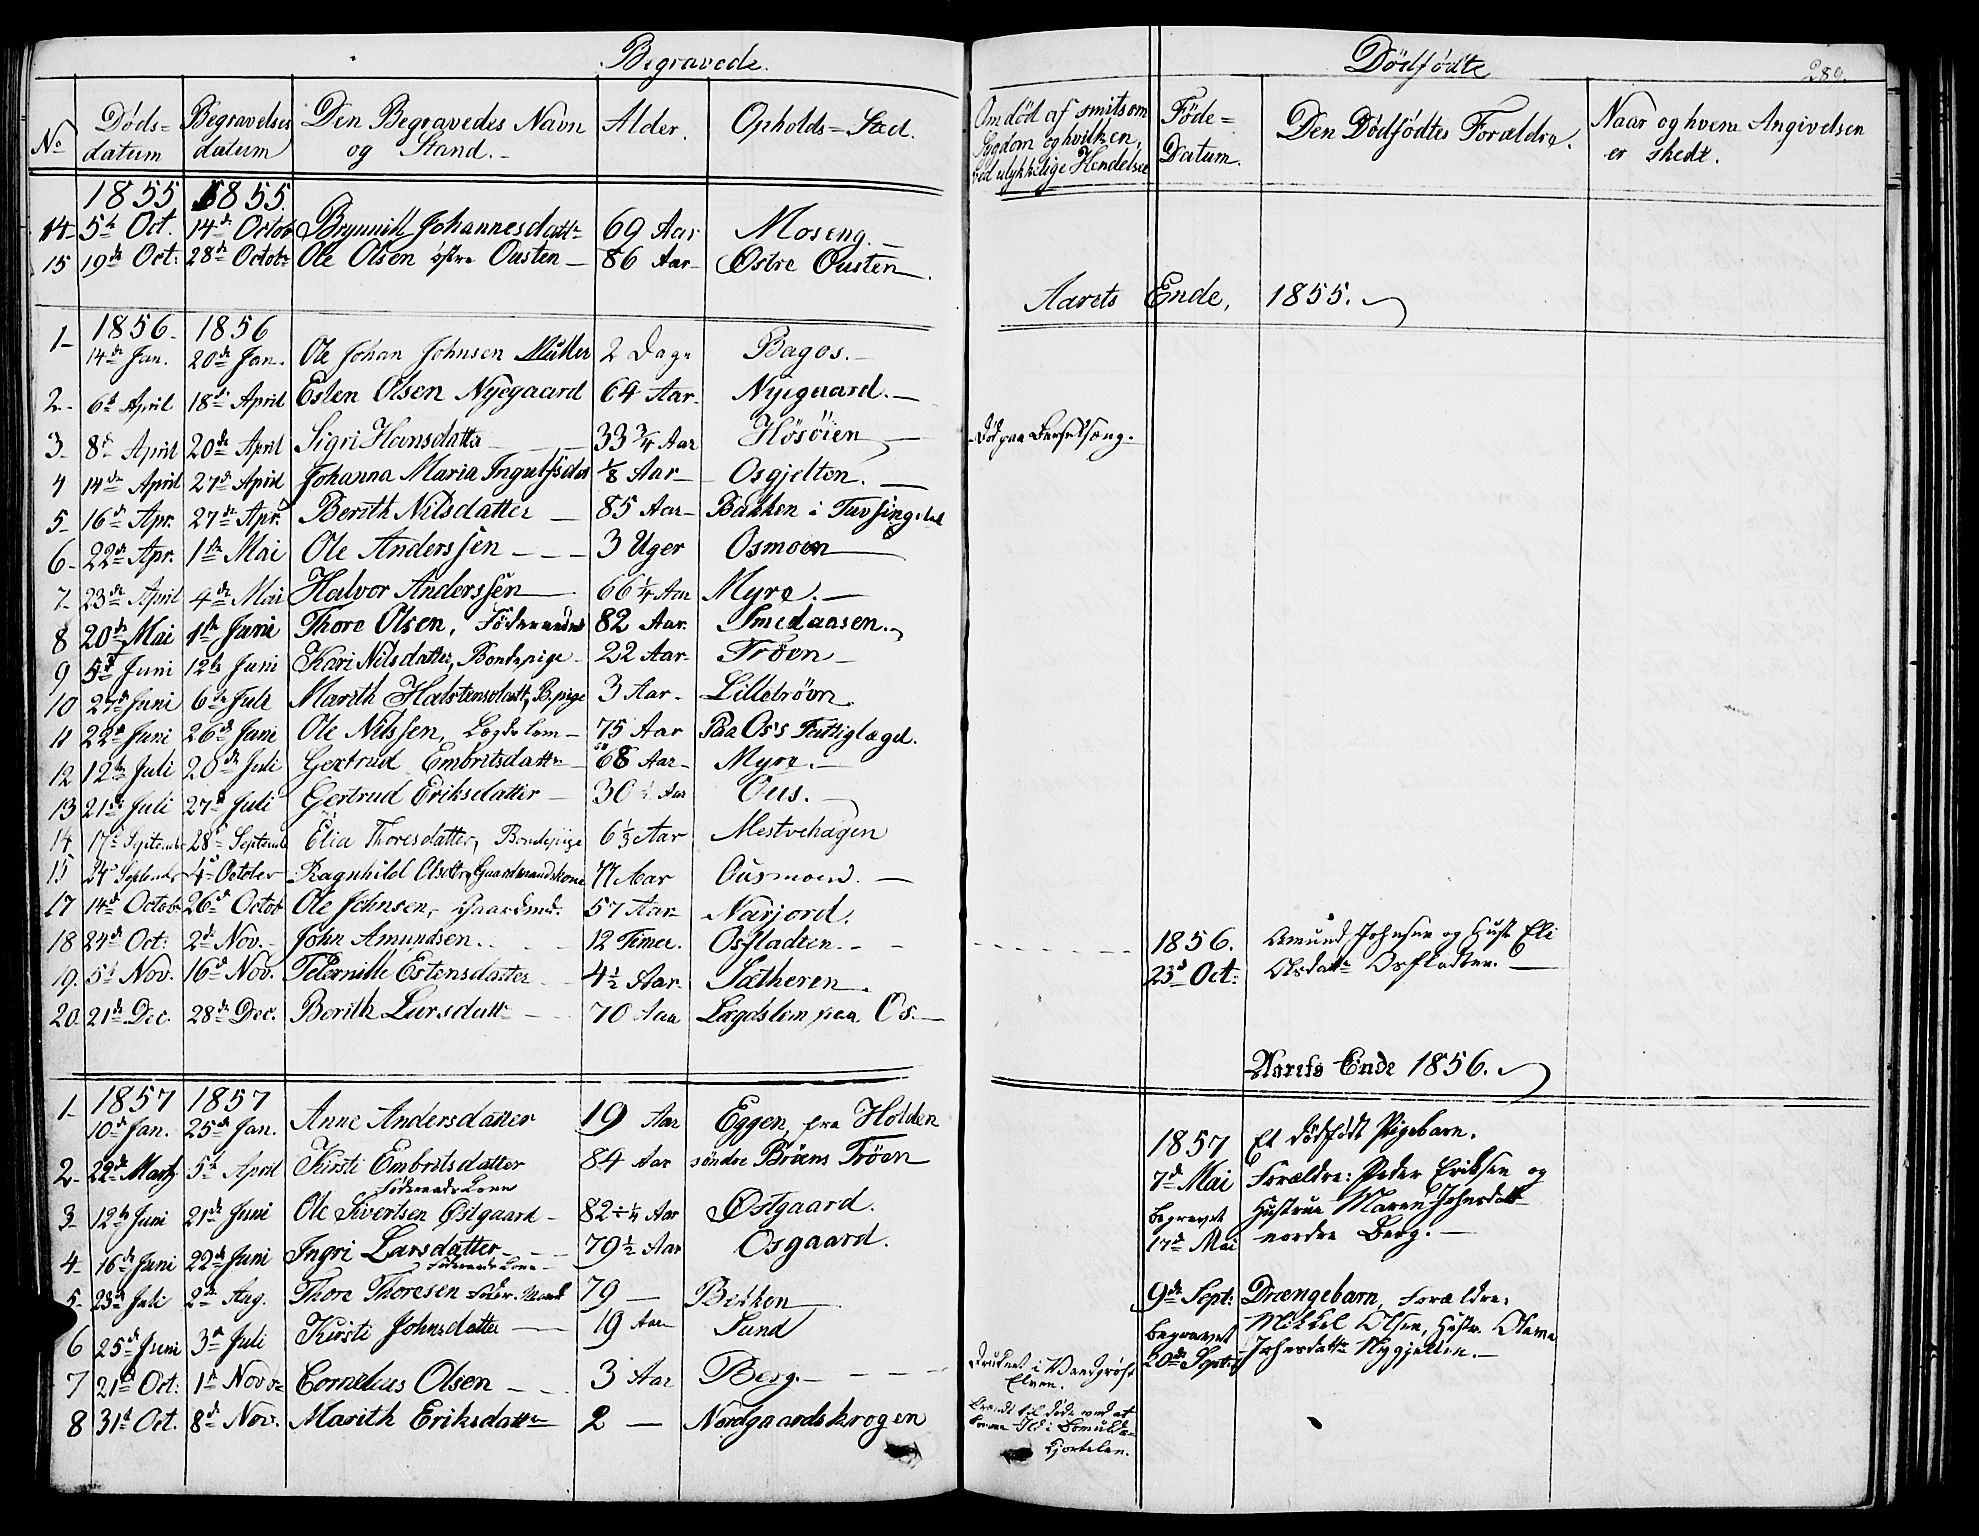 Begravede.
No Døds= datum Begravelses datum Den Begravedes Navn og Stand. Alder. Opholds=Sted.
1855 1855.
14 5t Oct. 14de Octob Brynnild Johannesdattr 69 Aar Moseng.
15 19de Oct: 28de Octobr Ole Olsen østre Ousten 86 Aar Østre Ousten.
1856. 1856
1 14de Jan. 20de Jan. Ole Johan Johnsen Müller 2 Dage Bagos.
2 6te April 18de April Esten Olsen Nyegaard 64 Aar Nyegaard.
3 8de April 20de April Sigri Hansdatter 33 3/4 Aar Høsøien
4 14de April 27de April Johanna Maria Ingulfsdat 1/8 Aar Osgjelten.
5 16de Apr. 27de Apr. Berith Nilsdatter 85 Aar Bakken i Tufsingdal
6 22de Apr. 1ste Mai Ole Anderssen 3 Uger Osmoen
7 23de April 4de Mai Halvor Anderssen 66 1/4 Aar Myre.
8 20de Mai 1ste Juni Thore Olsen, Føderaads 82 Aar. Smedaasen.
9 5te Juni 12te Juni Kari Nilsdatter, Bondepige 22 Aar Trøen
10 27de Juni 6te Juli Marith Halstensdattr, B.pige 3 Aar Lilletrøen
11 22de Juni 26de Juni Ole Nilssen, Lægdslem 75 Aar Paa Os's Fattiglægd.
12 12te Juli 20de Juli Gertrud Embritsdattr 68 Aar Myre.
13 21de Juli 27de Juli Gertrud Eriksdatter 30 Aar Ous.
14 17de September 28de Septemb Elia Thoresdatter, Bondepige 6 1/3 Aar Mestvehagen
15 24de September 4de October Ragnhild Olsdttr Gaardmandskone 77 Aar Ousmoen.
17 14de Octob 26de Octob Ole Johnsen, Gaardmd. 57 Aar Narjord.
18 24de Oct: 2de Nov. John Amundsen. 12 Timer. Osfladten.
19. 5te Nov. 16de Nov. Pternille Estensdatter 4 1/2 Aar Sætheren.
20 21de Dec. 28de Dec. Berith Larsdattr 70 Aar Lægdslem paa Os.
1857 1857
1 10de Jan. 25de Jan. Anne Andersdatter 19 Aar Eggen, fra Holden
2 22de Marts 5te April Kirsti Embritsdatter 84 Aar søndre Bröens Trøen
Føderaads Kone
3 12te Juni 21de Juni Ole Sivertsen Østgaard 82 1/4 Aar Østgaard.
4 16de Juni 22de Juni Ingri Larsdatter 79 1/2 Aar Osgaard.
Føderaads Kone
5 23de Juli 2de Aug. Thore Thoresen Føder. Mand 79 Bekken
6 25de Juni 3de Juli Kirsti Johnsdatter 19 Aar Sund
7 21de Oct. 1ste Novbr Cornelius Olsen 3 Aar Berg.
8 31te Oct. 8de Nov. Marith Eriksdattr 2 Nordgaardskrogen
Dødfødte
289.
Om død af smitsom Sygdom og hvilken, ved ulykkelige Hendelser Føde= Datum. Den Dødfødtes Forældre. Naar og hvem Angivelsen er skedt.
Aarets Ende, 1855.
Død paa Barselseng.
1856. Amund Johnsen og Hust Eli
23de Oct: Olsdattr Osfladten.
Aarets Ende 1856.
1857 Et dødfødt Pigebarn.
7de Mai Forældre: Peder Eriksen og
begravet Hustrue Maren Johnsdatt
17de Mai nordre Berg.
9de Sept: Drængebarn, Forældre:
begravet Mikkel Olsen, Hustr. Olava
20de Sept. Johnsdattr Nygjelten.
Druknet i Vandgrøft
Elven.
Brændt til døde ved at
komme Ild i Bomulds
Kjortelen.